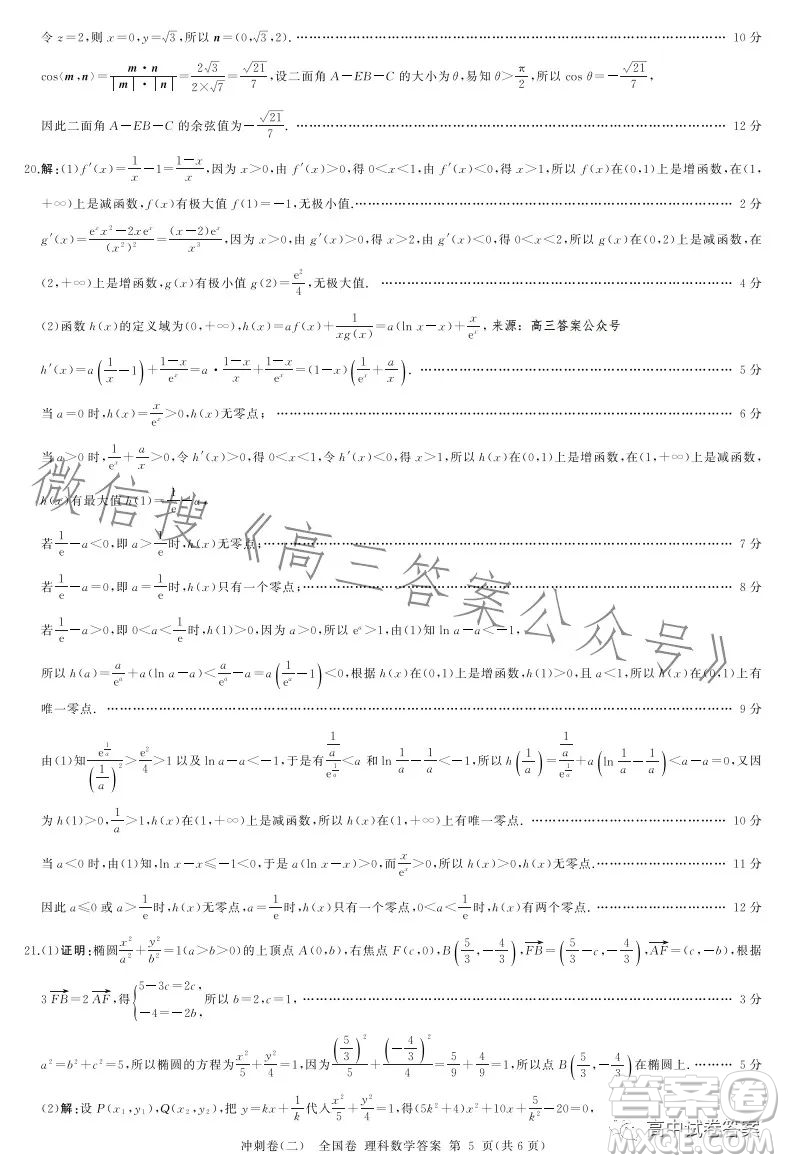 令 z=2,则 x=0,y=√3,所以 n=(0,√3,2). …… 10 分
cos⟨m,n⟩=m·n/(|m|·|n|)=2√3/(2×√7)=√21/7,设二面角 A-EB-C 的大小为 θ,易知 θ>π/2,所以 cos θ=-√21/7,
因此二面角 A-EB-C 的余弦值为-√21/7. …… 12 分
20.解:(1)f′(x)=1/x-1=(1-x)/x,因为 x>0,由 f′(x)>0,得 0<x<1,由 f′(x)<0,得 x>1,所以 f(x)在(0,1)上是增函数,在(1,
+∞)上是减函数,f(x)有极大值 f(1)=-1,无极小值. …… 2 分
g′(x)=(eˣx²-2xeˣ)/(x²)²=(x-2)eˣ/x³,因为 x>0,由 g′(x)>0,得 x>2,由 g′(x)<0,得 0<x<2,所以 g(x)在(0,2)上是减函数,在
(2,+∞)上是增函数,g(x)有极小值 g(2)=e²/4,无极大值. …… 4 分
(2)函数 h(x)的定义域为(0,+∞),h(x)=af(x)+1/(xg(x))=a(ln x-x)+x/eˣ, 来源: 高三答案公众号
h′(x)=a(1/x-1)+(1-x)/eˣ=a·(1-x)/x+(1-x)/eˣ=(1-x)(1/eˣ+a/x). …… 5 分
当 a=0 时,h(x)=x/eˣ>0,h(x)无零点; …… 6 分
当 a>0 时,1/eˣ+a/x>0,令 h′(x)>0,得 0<x<1,令 h′(x)<0,得 x>1,所以 h(x)在(0,1)上是增函数,在(1,+∞)上是减函数,
h(x)有最大值 h(1)=1/e-a.
若1/e-a<0,即 a>1/e时,h(x)无零点; …… 7 分
若1/e-a=0,即 a=1/e时,h(x)只有一个零点; …… 8 分
若1/e-a>0,即 0<a<1/e时,h(1)>0,因为 a>0,所以 eᵃ>1,由(1)知 ln a-a<-1,
所以 h(a)=a/eᵃ+a(ln a-a)<a/eᵃ-a=a(1/eᵃ-1)<0,根据 h(x)在(0,1)上是增函数,h(1)>0,且 a<1,所以 h(x)在(0,1)上有
唯一零点. …… 9 分
由(1)知e^(1/a)/(1/a)²>e²/4>1 以及 ln a-a<-1,于是有(1/a)/e^(1/a)<a 和 ln 1/a-1/a<-1,所以 h(1/a)=(1/a)/e^(1/a)+a(ln 1/a-1/a)<a-a=0,又因
为 h(1)>0,1/a>1,h(x)在(1,+∞)上是减函数,所以 h(x)在(1,+∞)上有唯一零点. …… 10 分
当 a<0 时,由(1)知,ln x-x≤-1<0,于是 a(ln x-x)>0,而x/eˣ>0,所以 h(x)>0,h(x)无零点. …… 11 分
因此 a≤0 或 a>1/e时,h(x)无零点,a=1/e时,h(x)只有一个零点,0<a<1/e时,h(x)有两个零点. …… 12 分
21.(1)证明:椭圆x²/a²+y²/b²=1(a>b>0)的上顶点 A(0,b),右焦点 F(c,0),B(5/3,-4/3),FB→=(5/3-c,-4/3),AF→=(c,-b),根据
3FB→=2AF→,得{5-3c=2c,-4=-2b,所以 b=2,c=1, …… 3 分
a²=b²+c²=5,所以椭圆的方程为x²/5+y²/4=1,因为(5/3)²/5+(-4/3)²/4=5/9+4/9=1,所以点 B(5/3,-4/3)在椭圆上. …… 5 分
(2)解:设 P(x₁,y₁),Q(x₂,y₂),把 y=kx+1/k代入x²/5+y²/4=1,得(5k²+4)x²+10x+5/k²-20=0,
冲刺卷(二) 全国卷 理科数学答案 第 5 页(共 6 页)
微信搜《高三答案公众号》
答案卷
高中试卷答案